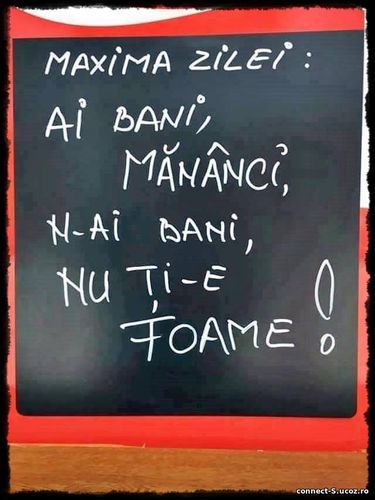 MAXIMA ZILEI :
AI BANI,
MĂNÂNCI,
N-AI BANI,
NU ȚI-E
FOAME !
connect-S.ucoz.ro